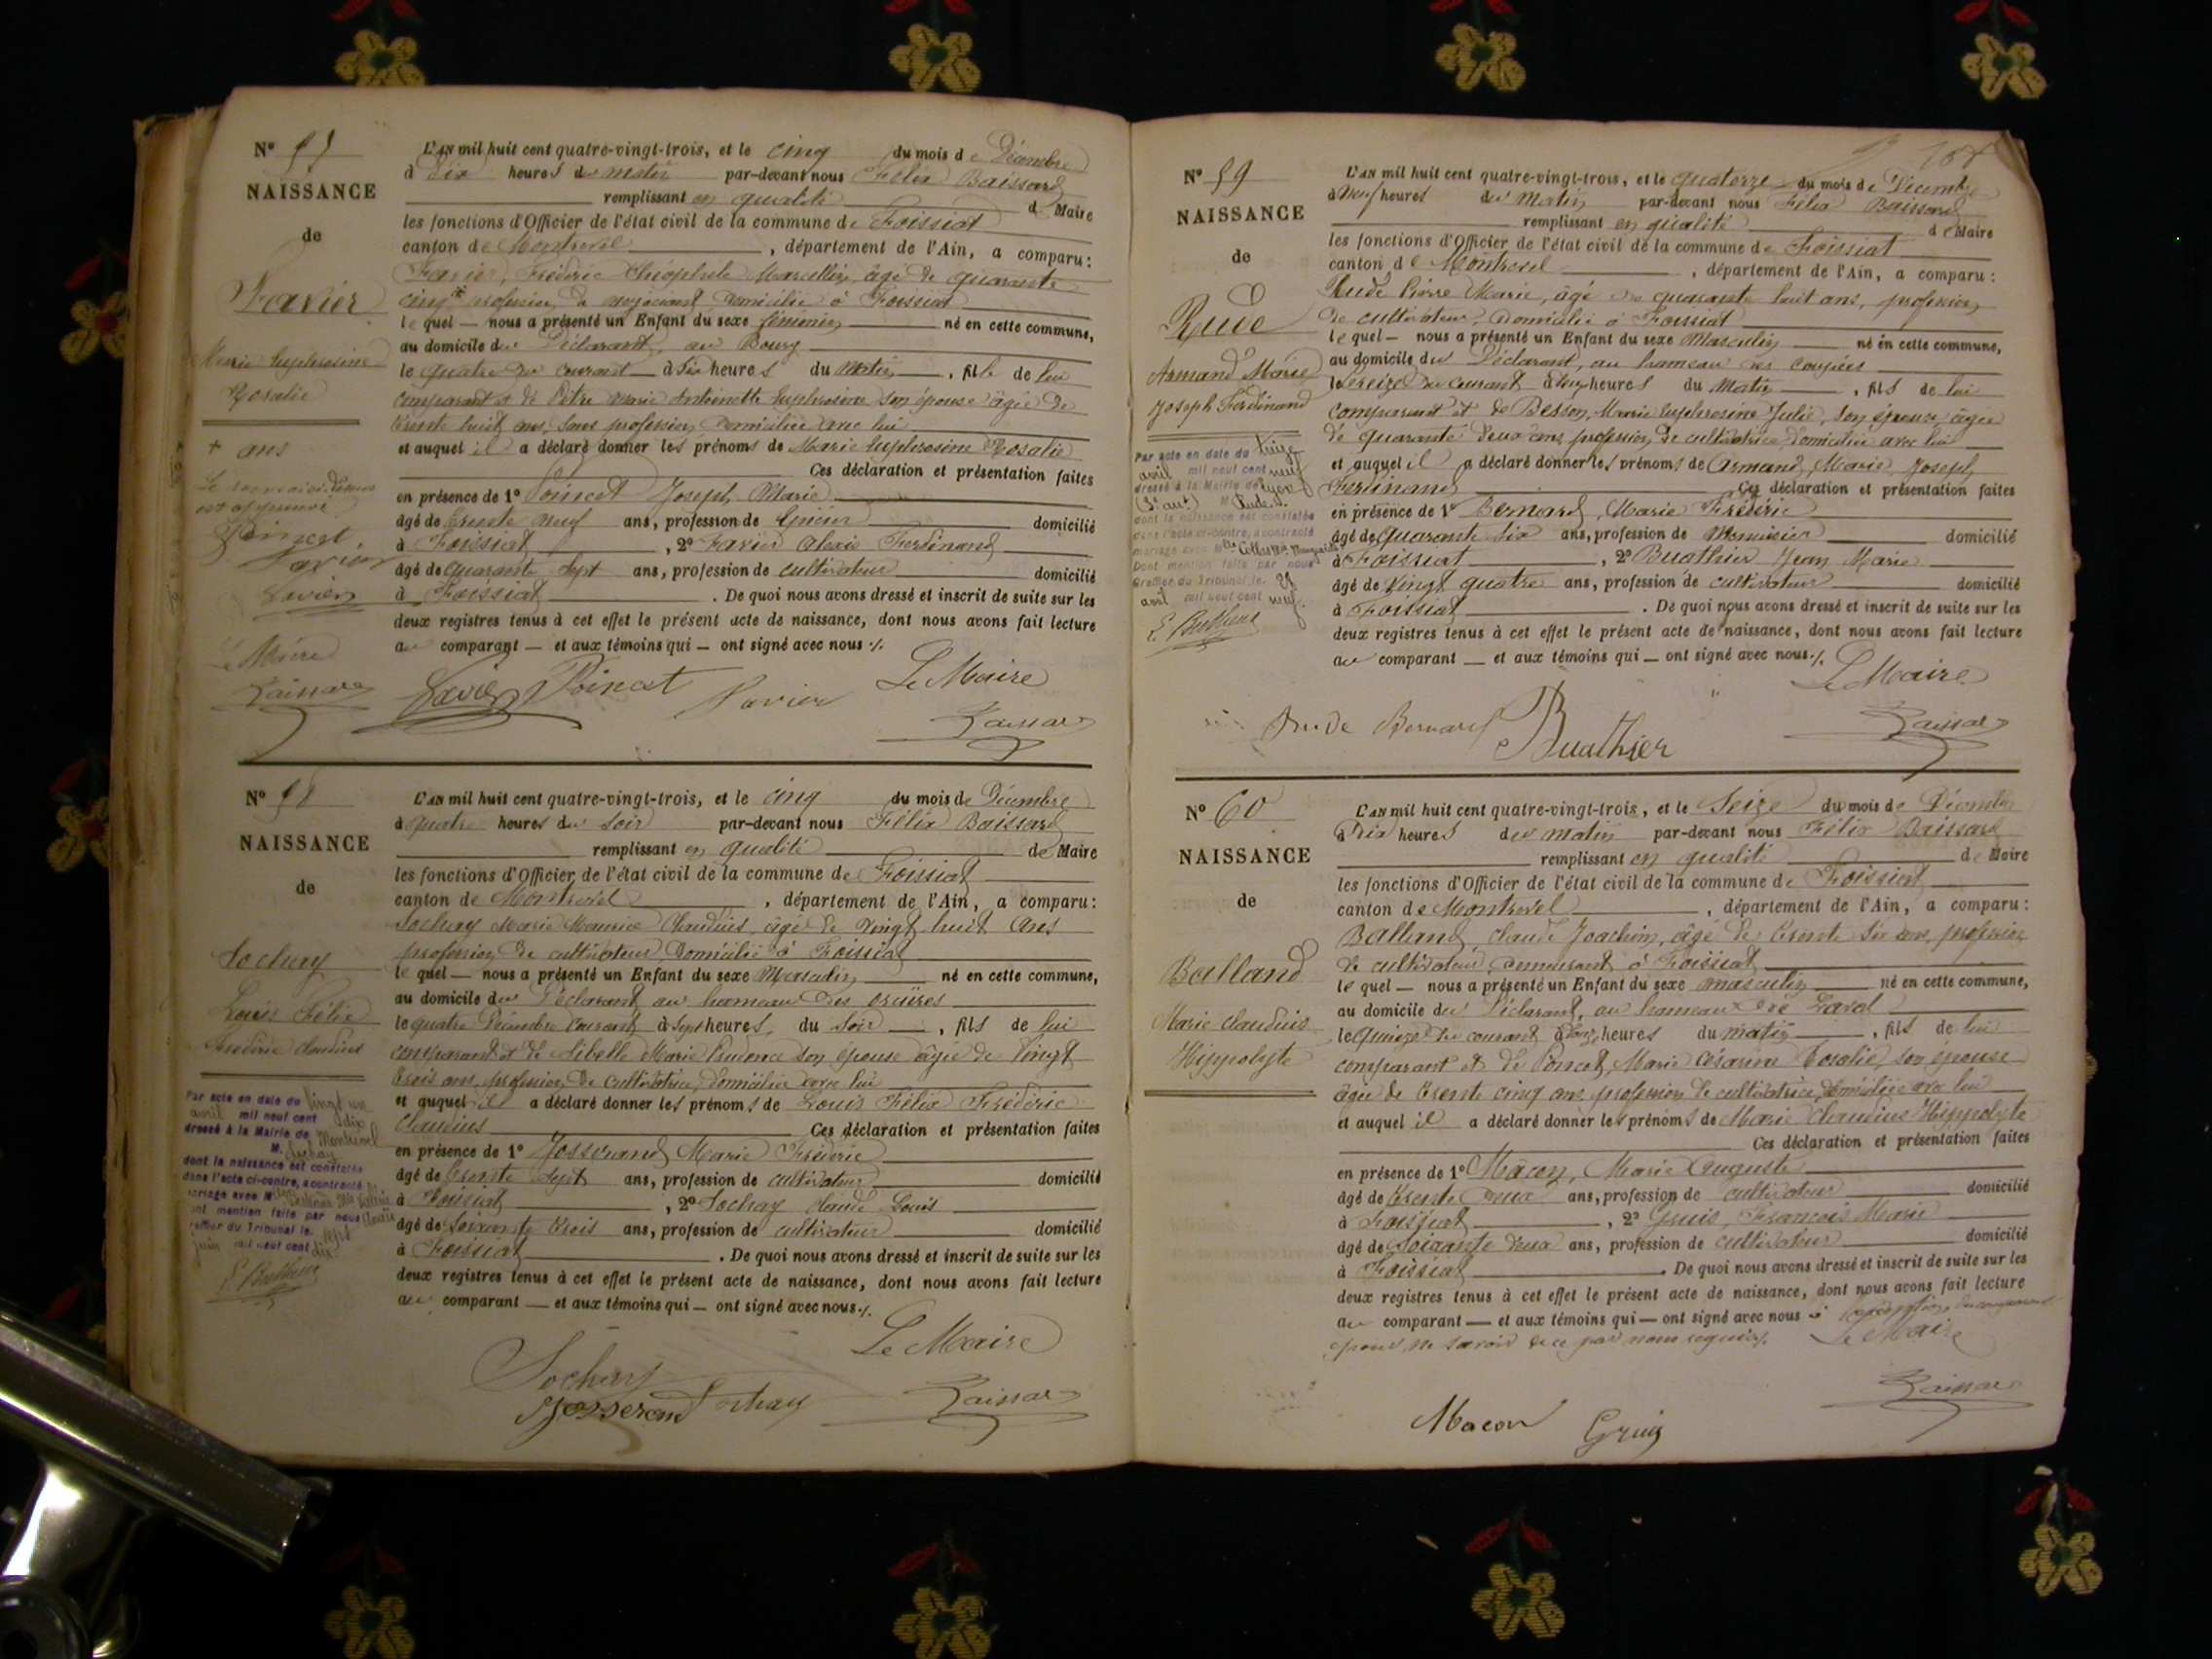 N° 57
NAISSANCE
de
Favier
Marie Euphrosine
Rosalie
+ ans
est approuvé
Poincet
Favier
Favier
Le Maire
Baissard
L'AN mil huit cent quatre-vingt-trois, et le cinq du mois de Décembre
à dix heures du matin par-devant nous Félix Baissard
remplissant en qualité de Maire
les fonctions d'Officier de l'état civil de la commune de Foissiat
canton de Montrevel, département de l'Ain, a comparu:
Favier, Frédéric Théophile Marcellin, âgé de quarante
cinq + profession de négociant domicilié à Foissiat
lequel — nous a présenté un Enfant du sexe féminin né en cette commune,
au domicile du Déclarant, au Bourg
le quatre du courant à six heures du matin, fille de lui
comparant et de Pitre Marie Antoinette Euphrosine son épouse âgée de
trente huit ans, sans profession domiciliée avec lui
et auquel il a déclaré donner les prénoms de Marie Euphrosine Rosalie
Ces déclaration et présentation faites
en présence de 1° Poincet Joseph Marie
âgé de trente neuf ans, profession de Epicier domicilié
à Foissiat, 2° Favier Alexis Ferdinand
âgé de quarante sept ans, profession de cultivateur domicilié
à Foissiat. De quoi nous avons dressé et inscrit de suite sur les
deux registres tenus à cet effet le présent acte de naissance, dont nous avons fait lecture
au comparant — et aux témoins qui — ont signé avec nous ./.
Favier Poincet Favier Le Maire
Baissard
N° 58
NAISSANCE
de
Sochay
Louis Félix
Frédéric Claudius
Par acte en date du vingt un
avril mil neuf cent dix
dressé à la Mairie de Montrevel
M. Sochay
dont la naissance est constatée
dans l'acte ci-contre, a contracté
mariage avec M
Dont mention faite par nous
Greffier du Tribunal le sept
juin mil neuf cent dix
L'AN mil huit cent quatre-vingt-trois, et le cinq du mois de Décembre
à quatre heures du soir par-devant nous Félix Baissard
remplissant en qualité de Maire
les fonctions d'Officier de l'état civil de la commune de Foissiat
canton de Montrevel, département de l'Ain, a comparu:
Sochay Marie Maurice Claudius, âgé de vingt huit ans
profession de cultivateur domicilié à Foissiat
lequel — nous a présenté un Enfant du sexe Masculin né en cette commune,
au domicile du Déclarant au hameau des
le quatre Décembre courant à sept heures, du soir —, fils de lui
comparant et de Sibelle Marie Prudence son épouse âgée de vingt
trois ans, profession de cultivatrice, domiciliée avec lui
et auquel il a déclaré donner les prénoms de Louis Félix Frédéric
Claudius Ces déclaration et présentation faites
en présence de 1° Josserand Marie Frédéric
âgé de trente sept ans, profession de cultivateur domicilié
à Foissiat, 2° Sochay Claude Louis
âgé de soixante trois ans, profession de cultivateur domicilié
à Foissiat. De quoi nous avons dressé et inscrit de suite sur les
deux registres tenus à cet effet le présent acte de naissance, dont nous avons fait lecture
au comparant — et aux témoins qui — ont signé avec nous ./.
Le Maire
Sochay
Josserand Sochay Baissard
N° 59
NAISSANCE
de
Rude
Armand Marie
Joseph Ferdinand
Par acte en date du treize
avril mil neuf cent neuf
dressé à la Mairie de Lyon
M. Rude
dont la naissance est constatée
dans l'acte ci-contre, a contracté
mariage avec
Dont mention faite par nous
Greffier du Tribunal le 29
avril mil neuf cent neuf.
L'AN mil huit cent quatre-vingt-trois, et le quatorze du mois de Décembre
à neuf heures du Matin par-devant nous Félix Baissard
remplissant en qualité de Maire
les fonctions d'Officier de l'état civil de la commune de Foissiat
canton de Montrevel, département de l'Ain, a comparu:
Rude Pierre Marie, âgé de quarante huit ans, profession
de cultivateur, domicilié à Foissiat
lequel — nous a présenté un Enfant du sexe Masculin né en cette commune,
au domicile du Déclarant, au hameau des
le treize du courant à heures du Matin, fils de lui
comparant et de Besson, Marie Euphrosine Julie, son épouse, âgée
de quarante deux ans, profession de cultivatrice, domiciliée avec lui
et auquel il a déclaré donner les prénoms de Armand, Marie, Joseph,
Ferdinand Ces déclaration et présentation faites
en présence de 1° Bernard, Marie Frédéric
âgé de quarante six ans, profession de Menuisier domicilié
à Foissiat, 2° Buathier Jean Marie
âgé de vingt quatre ans, profession de cultivateur domicilié
à Foissiat. De quoi nous avons dressé et inscrit de suite sur les
deux registres tenus à cet effet le présent acte de naissance, dont nous avons fait lecture
au comparant — et aux témoins qui — ont signé avec nous ./.
Le Maire
Rude Bernard Buathier Baissard
N° 60
NAISSANCE
de
Balland
Marie Claudius
Hippolyte
L'AN mil huit cent quatre-vingt-trois, et le Seize du mois de Décembre
à dix heures du matin par-devant nous Félix Baissard
remplissant en qualité de Maire
les fonctions d'Officier de l'état civil de la commune de Foissiat
canton de Montrevel, département de l'Ain, a comparu:
Balland, Claude Joachim, âgé de trente six ans, profession
de cultivateur, demeurant à Foissiat
lequel — nous a présenté un Enfant du sexe masculin né en cette commune,
au domicile du Déclarant, au hameau de
le quinze du courant à heures du matin, fils de lui
comparant et de Poncet, Marie Césarine Rosalie, son épouse
âgée de trente cinq ans profession de cultivatrice, domiciliée avec lui
et auquel il a déclaré donner les prénoms de Marie Claudius Hippolyte
Ces déclaration et présentation faites
en présence de 1° Mâcon, Marie Auguste
âgé de trente deux ans, profession de cultivateur domicilié
à Foissiat, 2° François Marie
âgé de soixante deux ans, profession de cultivateur domicilié
à Foissiat. De quoi nous avons dressé et inscrit de suite sur les
deux registres tenus à cet effet le présent acte de naissance, dont nous avons fait lecture
au comparant — et aux témoins qui — ont signé avec nous à l'exception du comparant
pour ne savoir de ce par nous requis ./. Le Maire
Baissard
Macon